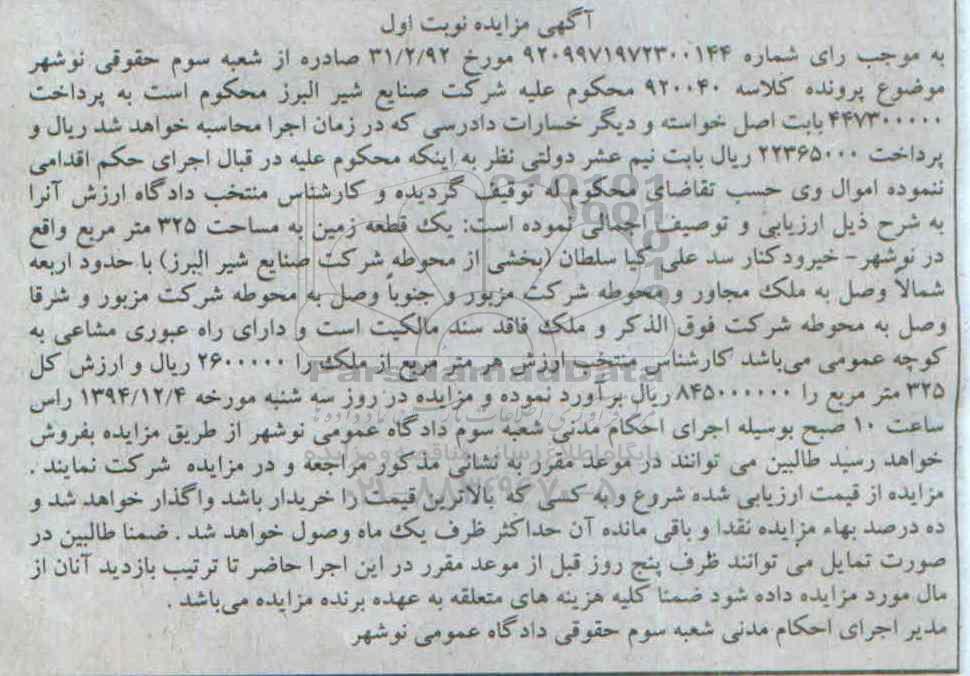 آگهی مزایده نوبت اول
به موجب رای شماره ۹۲۰۹۹۷۱۹۷۲۳۰۰۱۴۴ مورخ ۳۱/۲/۹۲ صادره از شعبه سوم حقوقی نوشهر
موضوع پرونده کلاسه ۹۲۰۰۴۰ محکوم علیه شرکت صنایع شیر البرز محکوم است به پرداخت
۴۴۷۳۰۰۰۰۰ بابت اصل خواسته و دیگر خسارات دادرسی که در زمان اجرا محاسبه خواهد شد ریال و
پرداخت ۲۲۳۶۵۰۰۰ ریال بابت نیم عشر دولتی نظر به اینکه محکوم علیه در قبال اجرای حکم اقدامی
ننموده اموال وی حسب تقاضای محکوم له توقیف گردیده و کارشناس منتخب دادگاه ارزش آنرا
به شرح ذیل ارزیابی و توصیف اجمالی نموده است: یک قطعه زمین به مساحت ۳۲۵ متر مربع واقع
در نوشهر- خیرودکنار سد علی کیا سلطان (بخشی از محوطه شرکت صنایع شیر البرز) با حدود اربعه
شمالاً وصل به ملک مجاور و محوطه شرکت مزبور و جنوباً وصل به محوطه شرکت مزبور و شرقا
وصل به محوطه شرکت فوق الذکر و ملک فاقد سند مالکیت است و دارای راه عبوری مشاعی به
کوچه عمومی می‌باشد کارشناس منتخب ارزش هر متر مربع از ملک را ۲۶۰۰۰۰۰ ریال و ارزش کل
۳۲۵ متر مربع را ۸۴۵۰۰۰۰۰۰ ریال برآورد نموده و مزایده در روز سه شنبه مورخه ۱۳۹۴/۱۲/۴ راس
ساعت ۱۰ صبح بوسیله اجرای احکام مدنی شعبه سوم دادگاه عمومی نوشهر از طریق مزایده بفروش
خواهد رسید طالبین می توانند در موعد مقرر به نشانی مذکور مراجعه و در مزایده شرکت نمایند .
مزایده از قیمت ارزیابی شده شروع و به کسی که بالاترین قیمت را خریدار باشد واگذار خواهد شد و
ده درصد بهاء مزایده نقدا و باقی مانده آن حداکثر ظرف یک ماه وصول خواهد شد . ضمنا طالبین در
صورت تمایل می توانند ظرف پنج روز قبل از موعد مقرر در این اجرا حاضر تا ترتیب بازدید آنان از
مال مورد مزایده داده شود ضمنا کلیه هزینه های متعلقه به عهده برنده مزایده می‌باشد .
مدیر اجرای احکام مدنی شعبه سوم حقوقی دادگاه عمومی نوشهر
ParsNamadData
پایگاه اطلاع رسانی مناقصه و مزایده